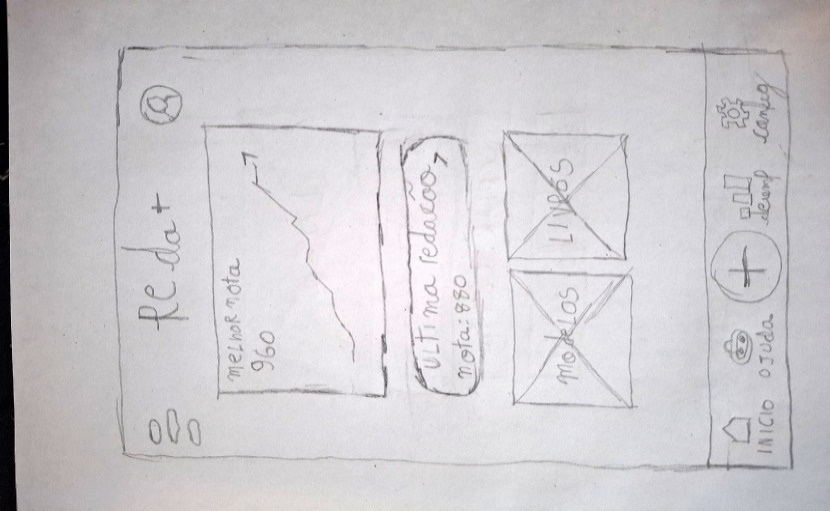 Reda+
melhor nota
960
Ultima redação
nota: 880
modelos
Livros
INICIO
ajuda
desemp
config